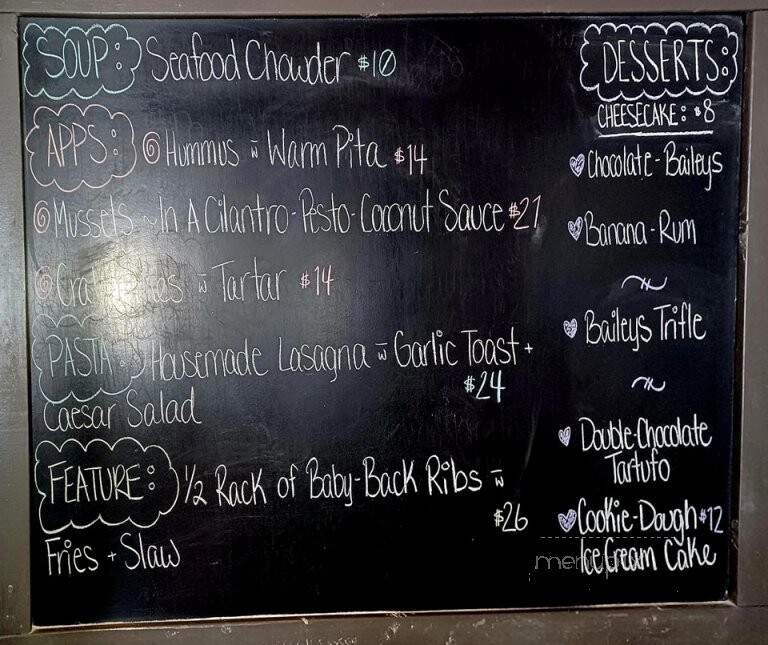 SOUP: Seafood Chowder $10
APPS: Hummus w̄ Warm Pita $14
Mussels ~ In A Cilantro-Pesto-Coconut Sauce $21
w̄ Tartar $14
PASTA: Housemade Lasagna w̄ Garlic Toast +
$24
Caesar Salad
FEATURE: 1/2 Rack of Baby-Back Ribs w̄
$26
Fries + Slaw
DESSERTS:
CHEESECAKE: $8
Chocolate-Baileys
Banana-Rum
Baileys Trifle
Double-Chocolate
Tartufo
Cookie-Dough $12
Ice Cream Cake